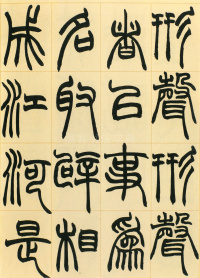 形聲形聲
者以事為
名取譬相
成江河是